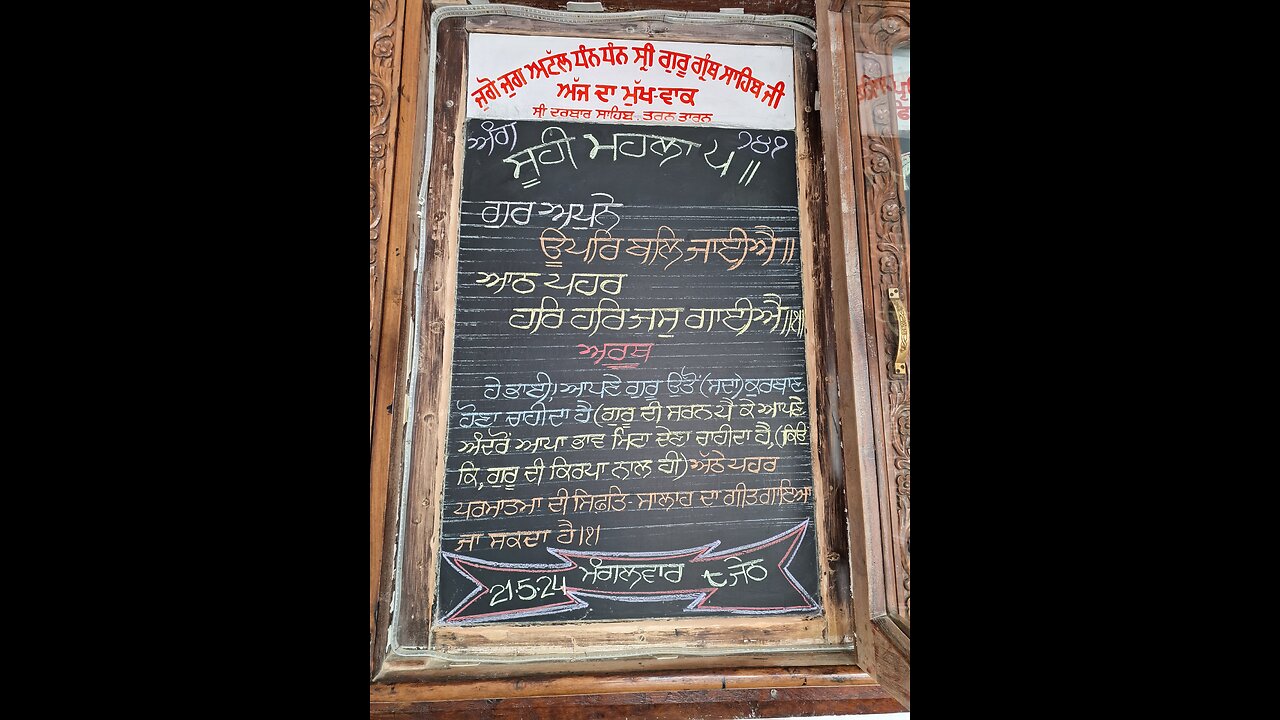 ਜੁਗੋ ਜੁਗ ਅਟੱਲ ਧੰਨ ਧੰਨ ਸ੍ਰੀ ਗੁਰੂ ਗ੍ਰੰਥ ਸਾਹਿਬ ਜੀ
ਅੱਜ ਦਾ ਮੁੱਖ-ਵਾਕ
ਸ੍ਰੀ ਦਰਬਾਰ ਸਾਹਿਬ, ਤਰਨ ਤਾਰਨ
ਅੰਗ ੭੪੧
ਸੂਹੀ ਮਹਲਾ ੫॥
ਗੁਰ ਅਪੁਨੇ
ਊਪਰਿ ਬਲਿ ਜਾਈਐ॥
ਆਠ ਪਹਰ
ਹਰਿ ਹਰਿ ਜਸੁ ਗਾਈਐ॥੧॥
ਅਰਥ
ਹੇ ਭਾਈ! ਆਪਣੇ ਗੁਰੂ ਉਤੋਂ (ਸਦਾ) ਕੁਰਬਾਣ
ਹੋਣਾ ਚਾਹੀਦਾ ਹੈ (ਗੁਰੂ ਦੀ ਸਰਨ ਪੈ ਕੇ ਆਪਣੇ
ਅੰਦਰੋਂ ਆਪਾ ਭਾਵ ਮਿਟਾ ਦੇਣਾ ਚਾਹੀਦਾ ਹੈ, (ਕਿਉਂ
ਕਿ, ਗੁਰੂ ਦੀ ਕਿਰਪਾ ਨਾਲ ਹੀ) ਅੱਠੇ ਪਹਰ
ਪਰਮਾਤਮਾ ਦੀ ਸਿਫ਼ਤਿ-ਸਾਲਾਹ ਦਾ ਗੀਤ ਗਾਇਆ
ਜਾ ਸਕਦਾ ਹੈ।੧।
21.5.24 ਮੰਗਲਵਾਰ ੮ ਜੇਠ